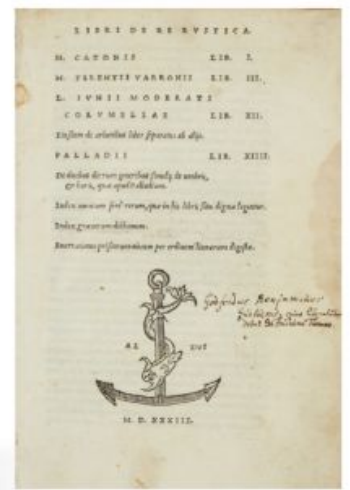 LIBRI DE RE RVSTICA
M. CATONIS LIB. I.
M. TERENTII VARRONIS LIB. III.
L. IVNII MODERATI
COLVMELLAE LIB. XII.
Eiusdem de arboribus liber separatus ab alijs.
PALLADII LIB. XIIII.
De duobus dierum generibus: simulq; de umbris,
et horis, quæ apud Palladium.
Index omnium ferè rerum, quæ in his libris scitu dignæ leguntur.
Index græcarum dictionum.
Enarrationes priscarum uocum per ordinem literarum digestæ.
AL DVS
M. D. XXXIII.